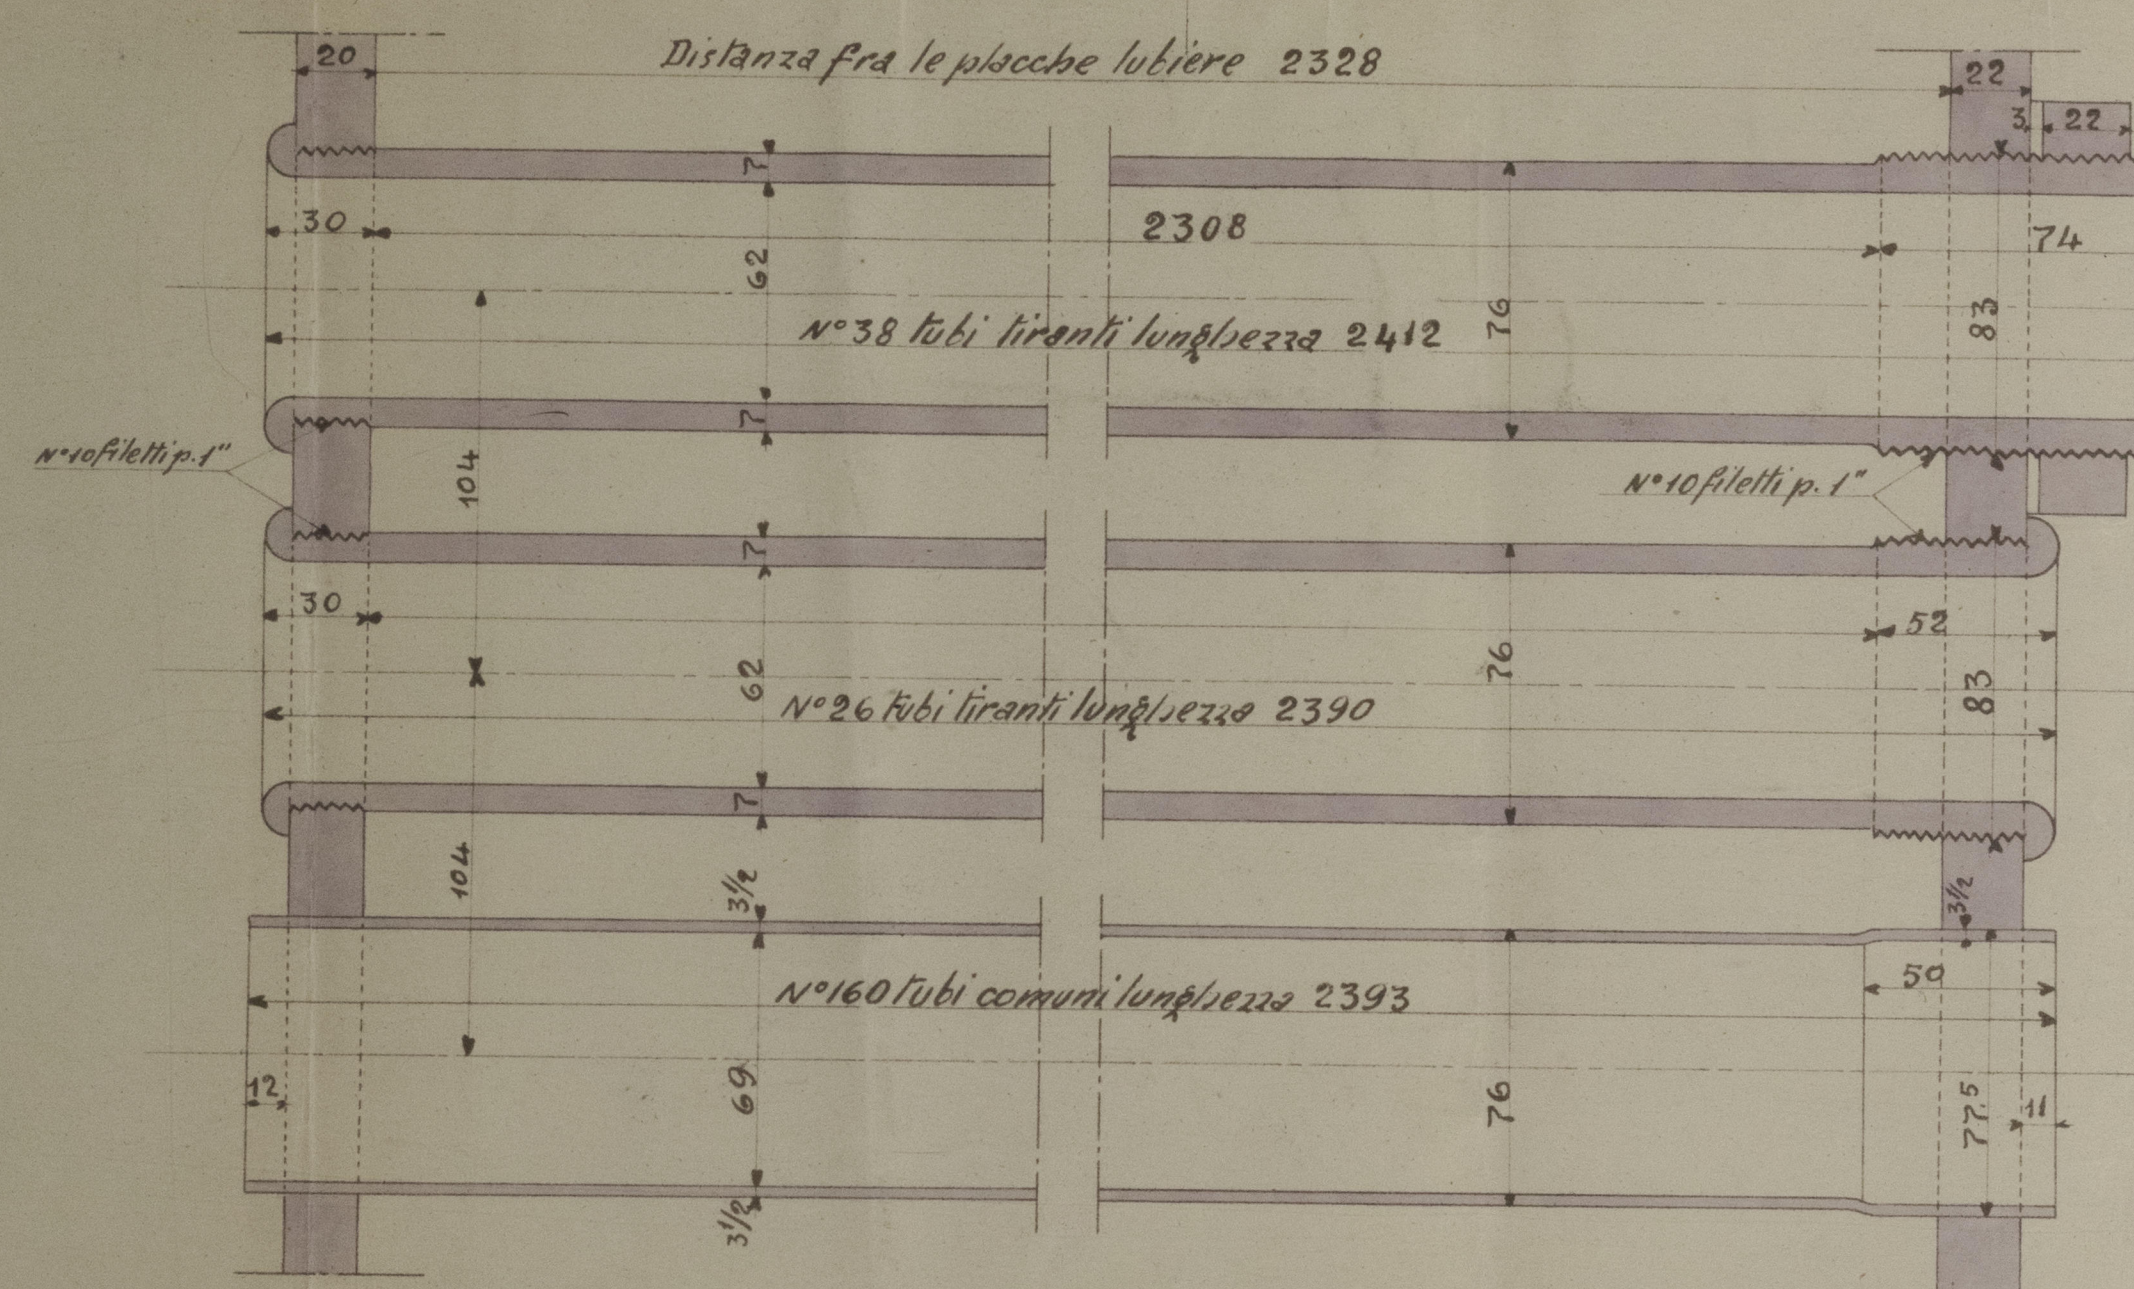 20
Distanza fra le placche tubiere 2328
22
3
22
7
30
2308
74
62
76
83
N° 38 tubi tiranti lunghezza 2412
7
N° 10 filetti p. 1"
104
N° 10 filetti p. 1"
7
30
52
62
76
83
N° 26 tubi tiranti lunghezza 2390
7
104
3 1/2
3 1/2
50
N° 160 tubi comuni lunghezza 2393
12
69
76
77,5
11
3 1/2